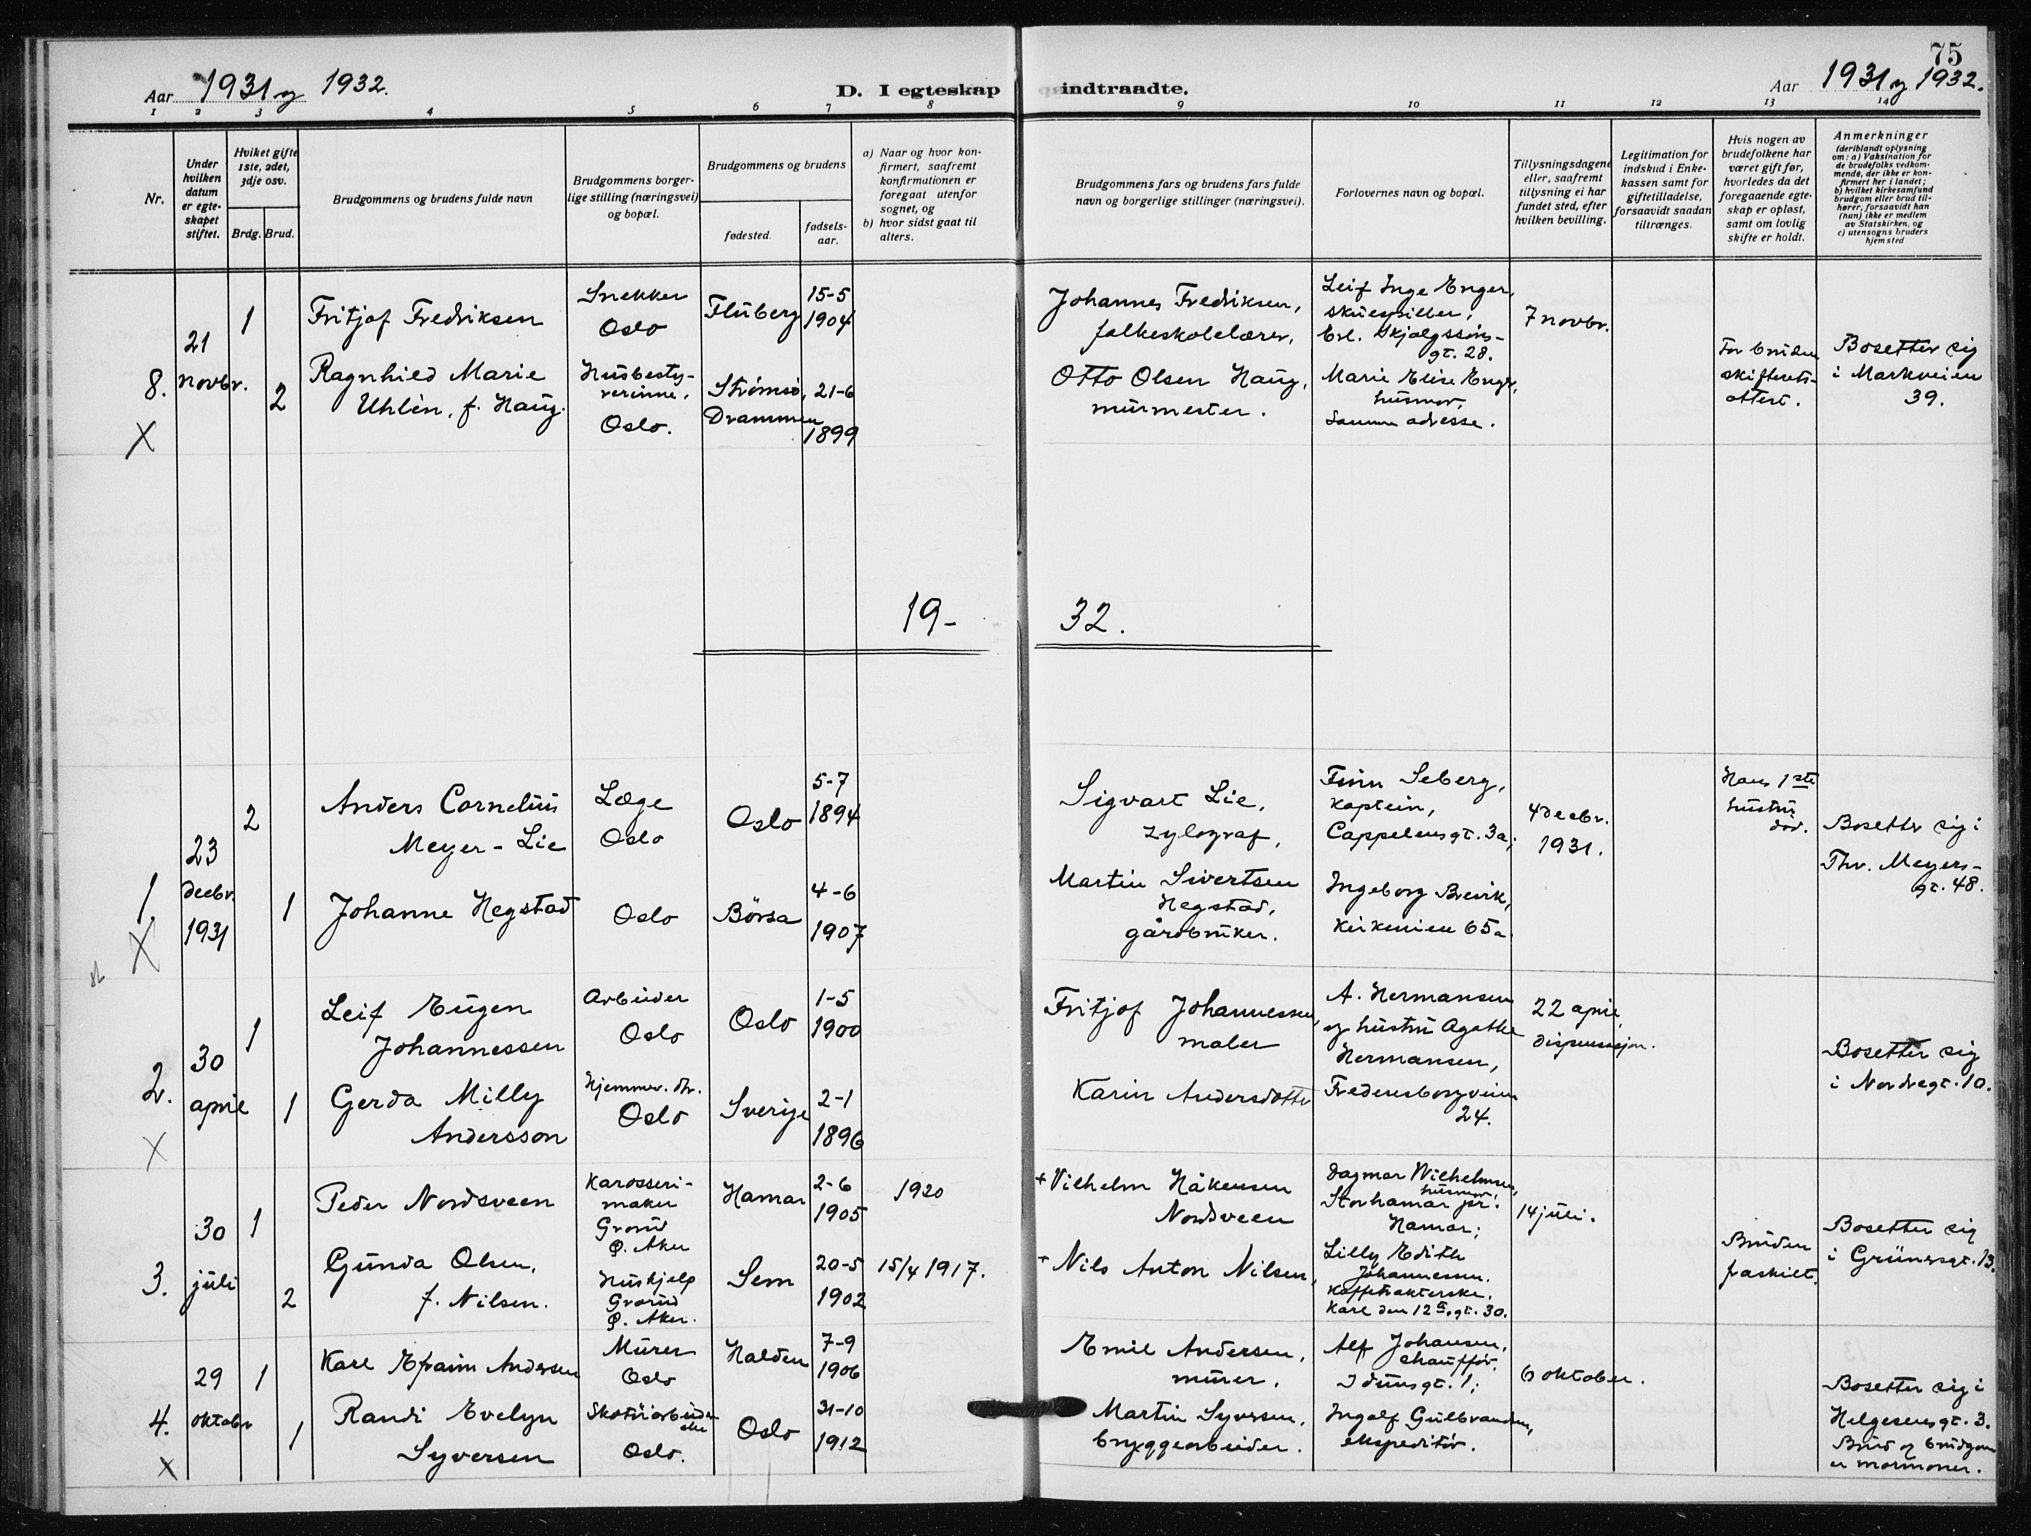 75
Aar 1931 og 1932.
D. I egteskap indtraadte.
Aar 1931 og 1932.
1 2 3 4 5 6 7 8 9 10 11 12 13 14
Nr.
Under
hvilken
datum
er egte-
skapet
stiftet.
Hviket gifte
1ste, 2det,
3dje osv.
Brdg. Brud.
Brudgommens og brudens fulde navn
Brudgommens borger-
lige stilling (næringsvei)
og bopæl.
Brudgommens og brudens
fødested.
fødsels-
aar.
a) Naar og hvor kon-
firmert, saafremt
konfirmationen er
foregaat utenfor
sognet, og
b) hvor sidst gaat til
alters.
Brudgommens fars og brudens fars fulde
navn og borgerlige stillinger (næringsvei).
Forlovernes navn og bopæl.
Tillysningsdagene
eller, saafremt
tillysning ei har
fundet sted, efter
hvilken bevilling.
Legitimation for
indskud i Enke-
kassen samt for
giftetilladelse,
forsaavidt saadan
tiltrænges.
Hvis nogen av
brudefolkene har
været gift før,
hvorledes da det
foregaaende egte-
skap er opløst,
samt om lovlig
skifte er holdt.
Anmerkninger
(deriblandt oplysning
om: a) Vaksination for
de brudefolks vedkom-
mende, der ikke er kon-
firmert her i landet;
b) hvilket kirkesamfund
brudgom eller brud til-
hører, forsaavidt han
(hun) ikke er medlem
av Statskirken, og
c) utensogns bruders
hjemsted
8.
X
21
novbr.
1
2
Fritjof Fredriksen
Ragnhild Marie
Uhlén, f. Haug.
Snekker
Oslo
Husbesty-
rerinne,
Oslo.
Fluberg
Strømsø,
Drammen
15-5
1904
21-6
1899
Johannes Fredriksen,
folkeskolelærer,
Otto Olsen Haug,
murmester.
Leif Inge Enger,
skuespiller,
Erl. Skjalgssøns-
gt. 28.
Marie Elise Enger,
husmor,
Samme adresse.
7 novbr.
For bruden
skifterets-
attest.
Bosetter sig
i Markveien
39.
19- 32.
1
X
23
decbr.
1931
2
1
Anders Cornelius
Meyer-Lie
Johanne Hegstad
Læge
Oslo
Oslo
Oslo
Börsa
5-7
1894
4-6
1907
Sigvart Lie,
zylograf,
Martin Sivertsen
Hegstad,
gårdbruker.
Finn Seberg,
kaptein,
Cappelensgt. 3a;
Ingeborg Brevik,
Kirkeveien 65a.
4 decbr.
1931.
Hans 1ste
hustru
död.
Bosetter sig i
Thv. Meyers-
gt. 48.
2.
X
30
april
1
1
Leif Eugen
Johannessen
Gerda Milly
Andersson
Arbeider
Oslo
Hjemmev. dtr.
Oslo
Oslo
Sverige
1-5
1900
2-1
1896
Fritjof Johannessen,
maler
Karin Andersdotter
A. Hermansen
og hustru Agathe
Hermansen,
Fredensborgveien
24.
22 april,
dispensasjon.
Bosetter sig
i Nordregt. 10.
3.
30
juli
1
2
Peder Nordsveen
Gunda Olsen,
f. Nilsen.
Karosseri-
maker
Grorud
Ø. Aker
Hushjelp
Grorud
Ø. Aker.
Hamar
Sem
2-6
1905
20-5
1902
1920
15/4 1917.
+ Vilhelm Håkensen
Nordsveen
+ Nils Anton Nilsen,
Dagmar Wilhelmsen,
husmor,
Storhamar pr.
Hamar;
Lilly Edith
Johannessen.
Kaffetrakterske.
Karl den 12tes gt. 30.
14 juli.
Bruden
fraskilt.
Bosetter sig
i Grünersgt. 13.
4.
X
29
oktobr
1
1
Karl Efraim Andersen
Randi Evelyn
Syversen
Murer
Oslo
Skotöiarbeider
ske
Oslo.
Halden
Oslo
7-9
1906
31-10
1912
Emil Andersen,
murer.
Martin Syversen,
bryggearbeider.
Alf Johansen,
chauffør,
Idunsgt. 1;
Ingolf Gulbrandsen,
ekspeditör.
6 oktober.
Bosetter sig i
Helgesensgt. 3.
Brud og brudgom
er mormoner.